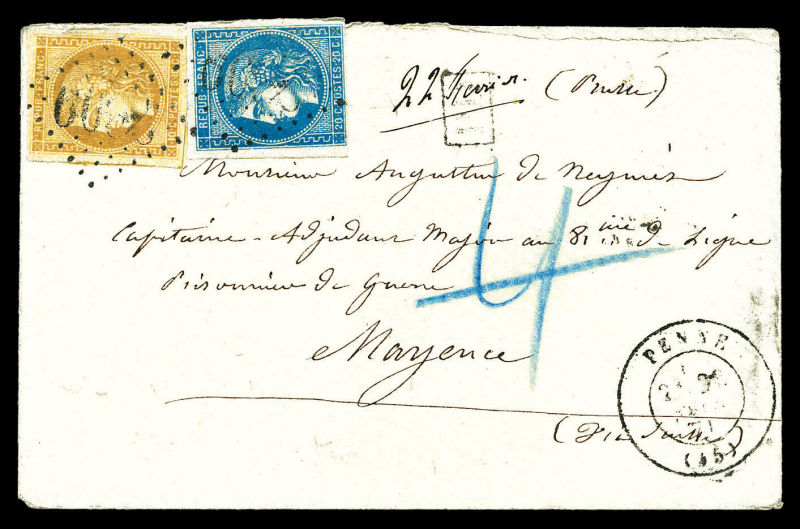 REPUB. FRANC.
20 C. POSTES 20 C.
22 février. (Prusse)
Monsieur Augustin de
Capitaine-Adjudant Major au 81 de Ligne
Prisonnier de Guerre
4
Mayence
PENNE
(45)
(Via Suisse)